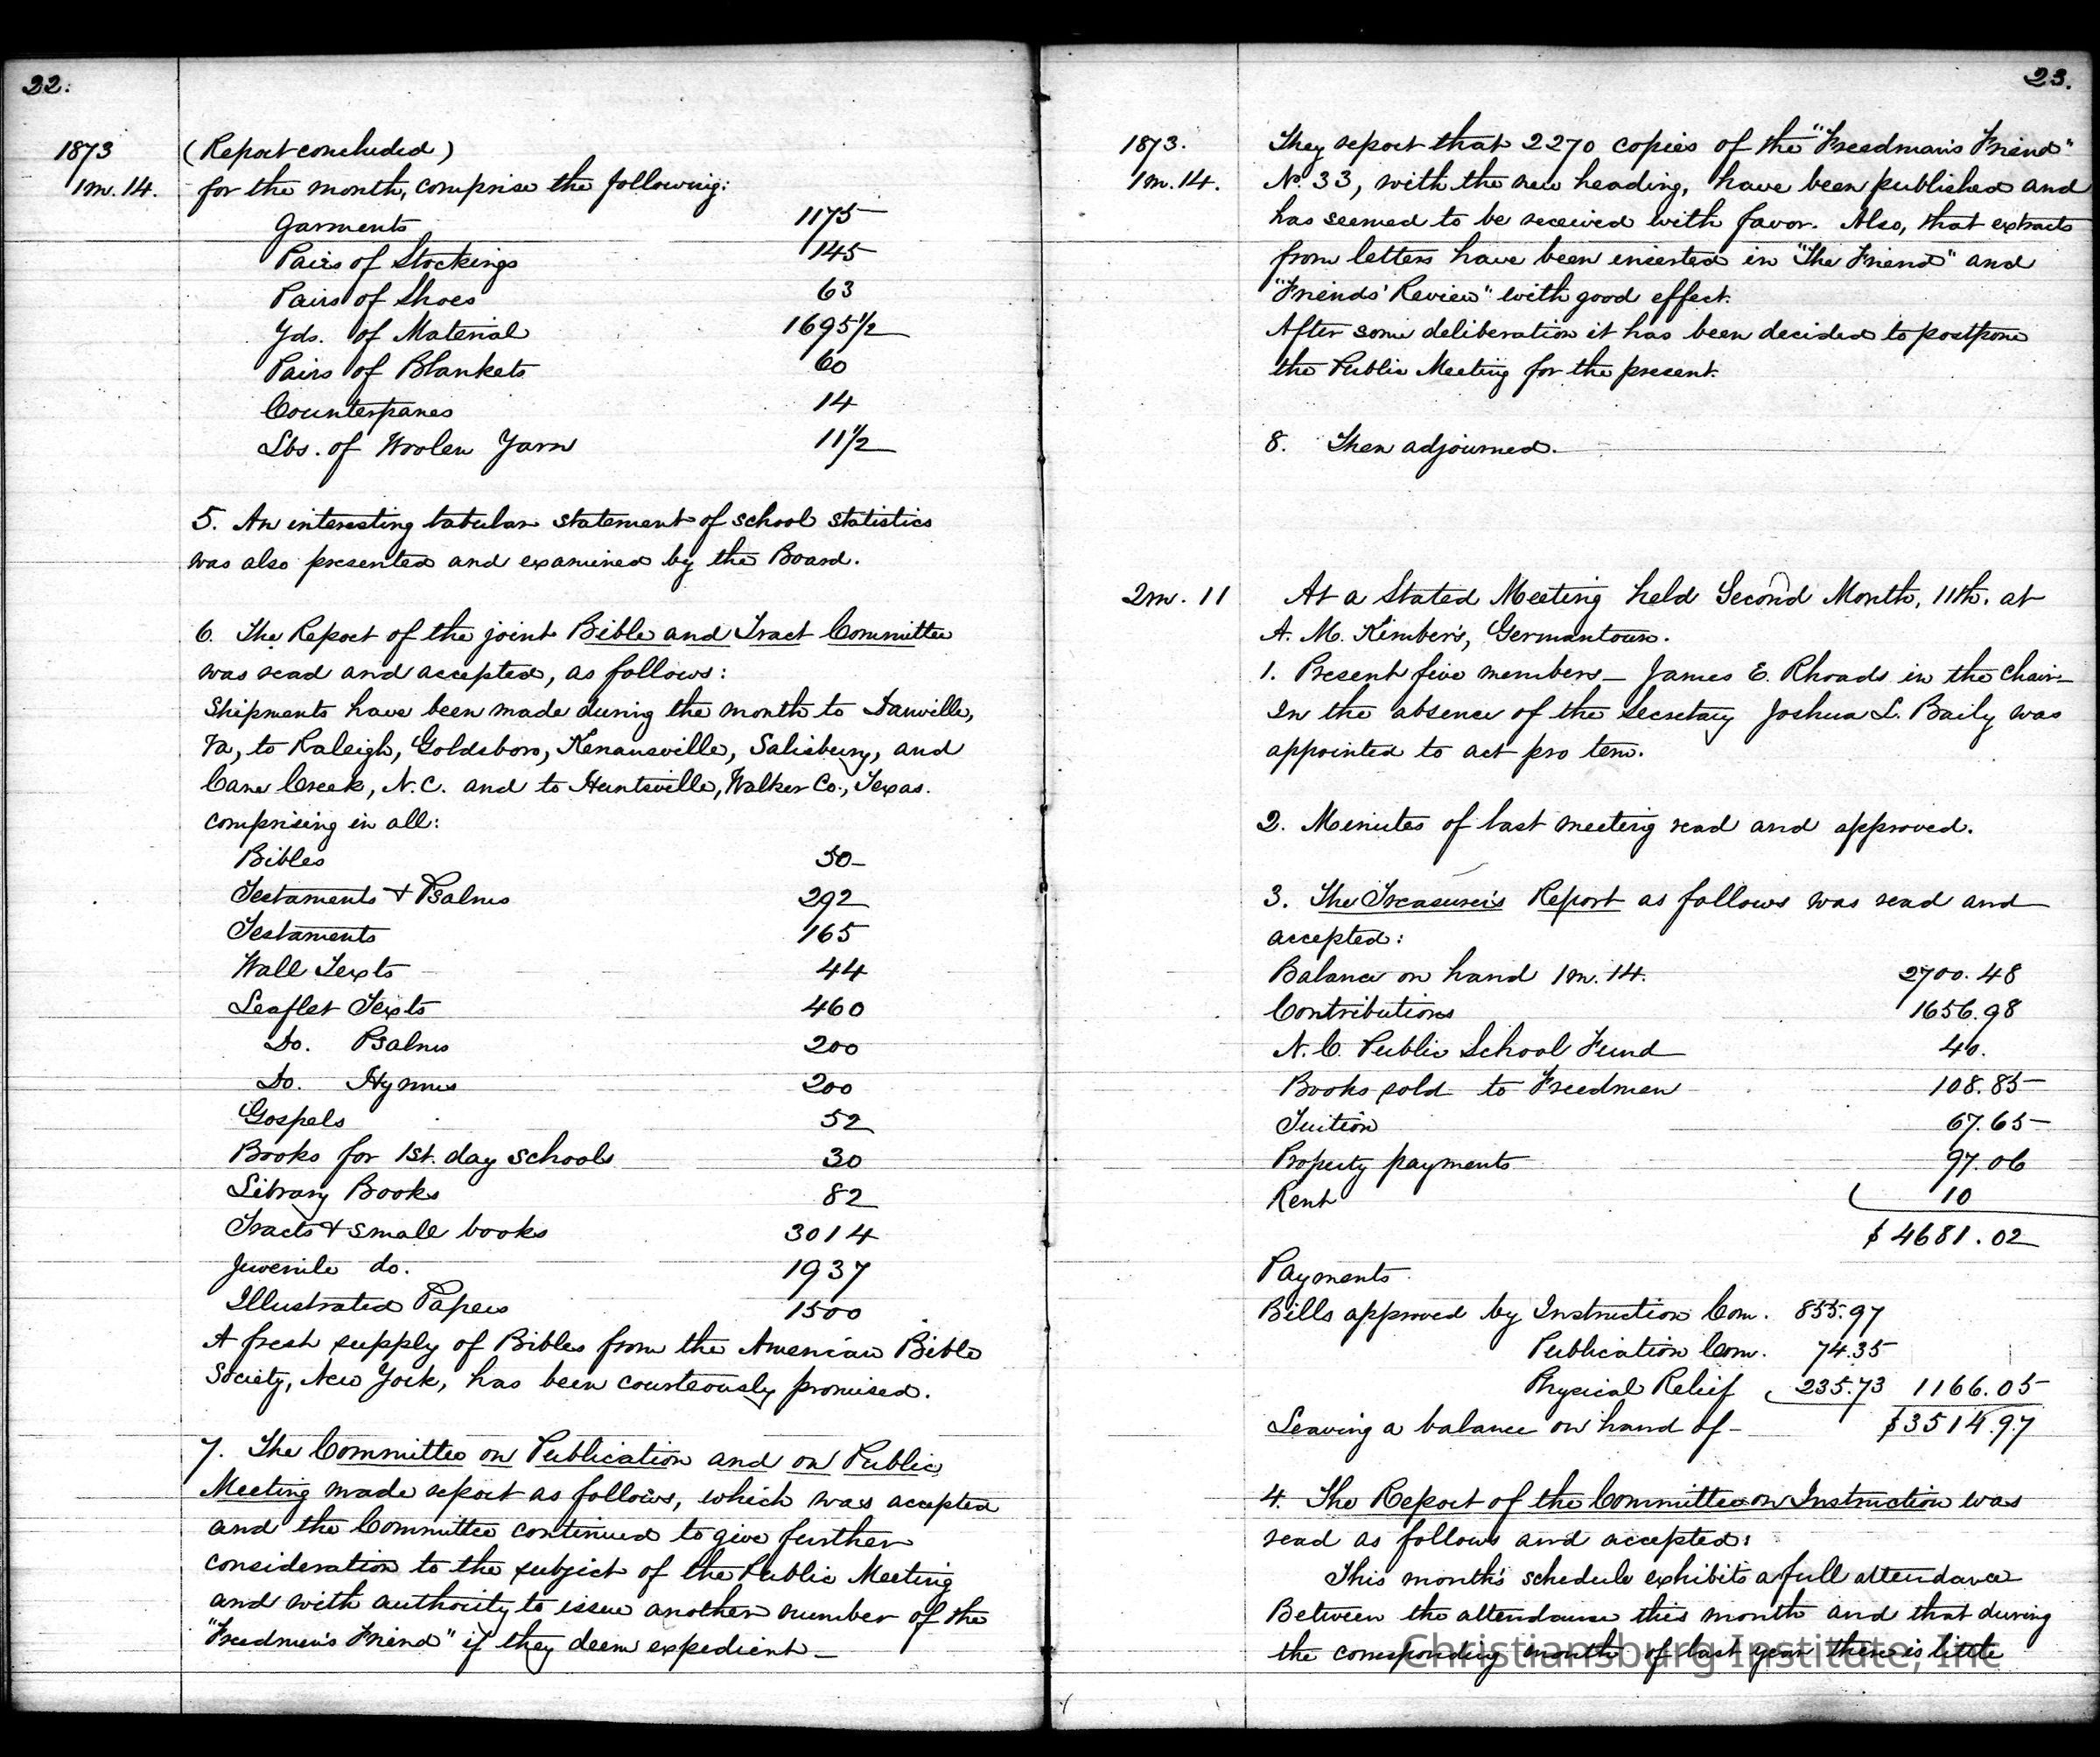 22.
1873
1m. 14.
(Report concluded)
for the month, comprise the following:
Garments 1175
Pairs of Stockings 145
Pairs of Shoes 63
Yds. of Material 1695 1/2
Pairs of Blankets 60
Counterpanes 14
Lbs. of Woolen Yarn 11 1/2
5. An interesting tabular statement of school statistics
was also presented and examined by the Board.
6. The Report of the joint Bible and Tract Committee
was read and accepted, as follows:
Shipments have been made during the month to Danville,
Va, to Raleigh, Goldsboro, Kenansville, Salisbury, and
Cane Creek, N.C. and to Huntsville, Walker Co., Texas.
comprising in all:
Bibles 50
Testaments & Psalms 292
Testaments 165
Wall Texts 44
Leaflet Texts 460
Do. Psalms 200
Do. Hymns 200
Gospels 52
Books for 1st. day schools 30
Library Books 82
Tracts & small books 3014
Juvenile do. 1937
Illustrated Papers 1500
A fresh supply of Bibles from the American Bible
Society, New York, has been courteously promised.
7. The Committee on Publication and on Public
Meeting made report as follows, which was accepted
and the Committee continued to give further
consideration to the subject of the Public Meeting
and with authority to issue another number of the
"Freedmen's Friend" if they deem expedient_
23.
1873.
1m. 14.
They report that 2270 copies of the "Freedman's Friend"
No. 33, with the new heading, have been published and
has seemed to be received with favor. Also, that extracts
from letters have been inserted in "The Friend" and
"Friends' Review" with good effect.
After some deliberation it has been decided to postpone
the Public Meeting for the present.
8. Then adjourned.
2m. 11
At a Stated Meeting held Second Month, 11th. at
A. M. Kimber's, Germantown.
1. Present five members_ James E. Rhoads in the chair_
In the absence of the Secretary Joshua L. Baily was
appointed to act pro tem.
2. Minutes of last meeting read and approved.
3. The Treasurer's Report as follows was read and
accepted:
Balance on hand 1m. 14. 2700.48
Contributions 1656.98
N.C. Public School Fund 40.
Books sold to Freedmen 108.85
Tuition 67.65
Property payments 97.06
Rent 10
$ 4681.02
Payments
Bills approved by Instruction Com. 855.97
Publication Com. 74.35
Physical Relief 235.73 1166.05
Leaving a balance on hand of_ $3514.97
4. The Report of the Committee on Instruction was
read as follows and accepted:
This month's schedule exhibits a full attendance
Between the attendance this month and that during
the corresponding month of last year there is little
Christiansburg Institute, Inc